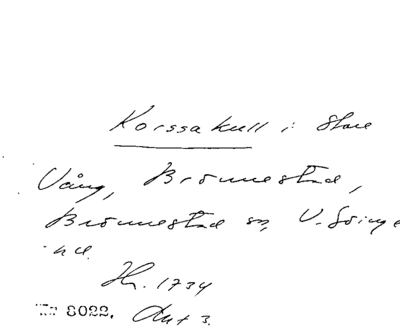 Korssakull i Stora
Vång, Brönnestad,
Brönnestad sn, V. Göinge
hd.
Hr. 1734
Nr 8022. Akt 3.